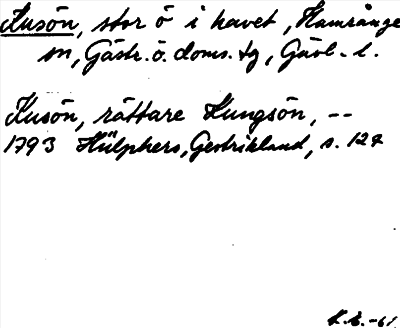 Kusön, stor ö i havet, Hamrånge
sn, Gästr. ö. doms. tg, Gävl. l.
Kusön, rättare Kungsön, --
1793 Hülphers, Gestrikland, s. 127
K.E. -61